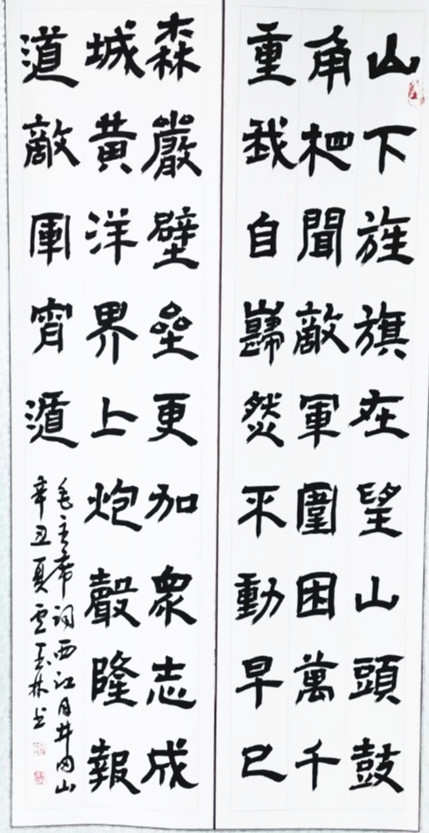 山下旌旗在望山頭鼓
角相聞敵軍圍困萬千
重我自巋然不動早已
森嚴壁壘更加衆志成
城黃洋界上炮聲隆報
道敵軍宵遁
毛主席词西江月井冈山
辛丑夏林书